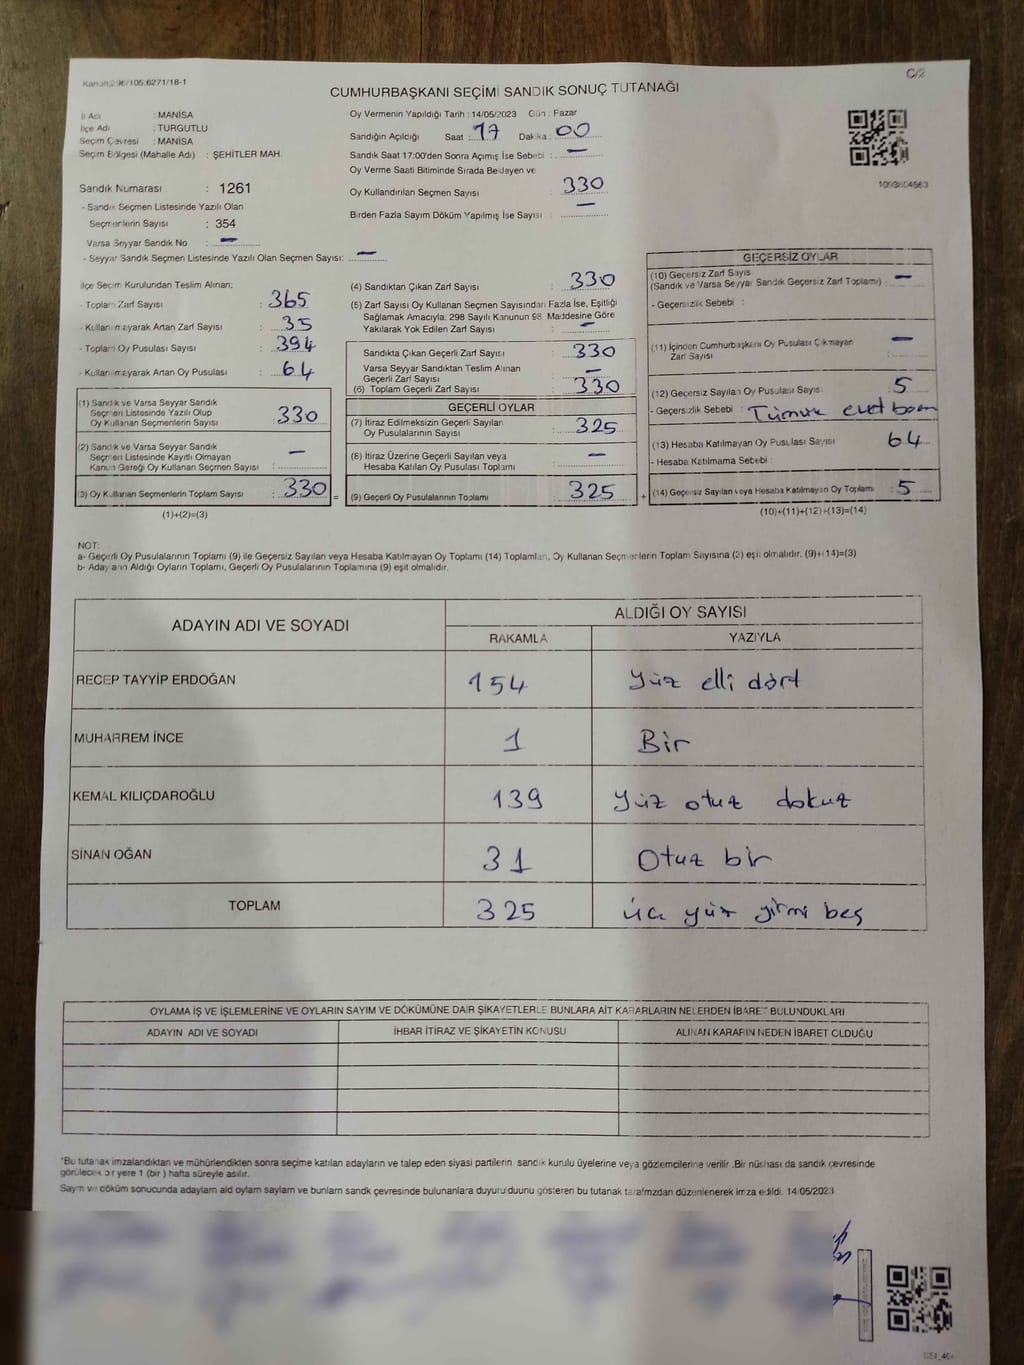 Kanun;298/105;6271/18-1
C/2
CUMHURBAŞKANI SEÇİMİ SANDIK SONUÇ TUTANAĞI
İl Adı : MANİSA
İlçe Adı : TURGUTLU
Seçim Çevresi : MANİSA
Seçim Bölgesi (Mahalle Adı) : ŞEHİTLER MAH.
Sandık Numarası : 1261
- Sandık Seçmen Listesinde Yazılı Olan
Seçmenlerin Sayısı : 354
Varsa Seyyar Sandık No : —
- Seyyar Sandık Seçmen Listesinde Yazılı Olan Seçmen Sayısı: —
Oy Vermenin Yapıldığı Tarih : 14/05/2023 Gün : Pazar
Sandığın Açıldığı Saat : 17 Dakika : 00
Sandık Saat 17:00'den Sonra Açılmış İse Sebebi : —
Oy Verme Saati Bitiminde Sırada Bekleyen ve
Oy Kullandırılan Seçmen Sayısı : 330
Birden Fazla Sayım Döküm Yapılmış İse Sayısı : —
1093804563
İlçe Seçim Kurulundan Teslim Alınan;
- Toplam Zarf Sayısı : 365
- Kullanılmayarak Artan Zarf Sayısı : 35
- Toplam Oy Pusulası Sayısı : 394
- Kullanılmayarak Artan Oy Pusulası : 64
(1) Sandık ve Varsa Seyyar Sandık
Seçmen Listesinde Yazılı Olup
Oy Kullanan Seçmenlerin Sayısı : 330
(2) Sandık ve Varsa Seyyar Sandık
Seçmen Listesinde Kayıtlı Olmayan
Kanun Gereği Oy Kullanan Seçmen Sayısı : —
(3) Oy Kullanan Seçmenlerin Toplam Sayısı : 330 =
(1)+(2)=(3)
(4) Sandıktan Çıkan Zarf Sayısı : 330
(5) Zarf Sayısı Oy Kullanan Seçmen Sayısından Fazla İse, Eşitliği
Sağlamak Amacıyla; 298 Sayılı Kanunun 98. Maddesine Göre
Yakılarak Yok Edilen Zarf Sayısı : —
Sandıkta Çıkan Geçerli Zarf Sayısı : 330
Varsa Seyyar Sandıktan Teslim Alınan
Geçerli Zarf Sayısı : —
(6) Toplam Geçerli Zarf Sayısı : 330
GEÇERLİ OYLAR
(7) İtiraz Edilmeksizin Geçerli Sayılan
Oy Pusulalarının Sayısı : 325
(8) İtiraz Üzerine Geçerli Sayılan veya
Hesaba Katılan Oy Pusulası Toplamı : —
(9) Geçerli Oy Pusulalarının Toplamı : 325 +
GEÇERSİZ OYLAR
(10) Geçersiz Zarf Sayısı
(Sandık ve Varsa Seyyar Sandık Geçersiz Zarf Toplamı) : —
- Geçersizlik Sebebi :
(11) İçinden Cumhurbaşkanı Oy Pusulası Çıkmayan
Zarf Sayısı : —
(12) Geçersiz Sayılan Oy Pusulası Sayısı : 5
- Geçersizlik Sebebi : Tümüne evet basm
(13) Hesaba Katılmayan Oy Pusulası Sayısı : 64
- Hesaba Katılmama Sebebi :
(14) Geçersiz Sayılan veya Hesaba Katılmayan Oy Toplamı : 5
(10)+(11)+(12)+(13)=(14)
NOT:
a- Geçerli Oy Pusulalarının Toplamı (9) ile Geçersiz Sayılan veya Hesaba Katılmayan Oy Toplamı (14) Toplamları, Oy Kullanan Seçmenlerin Toplam Sayısına (3) eşit olmalıdır. (9)+(14)=(3)
b- Adayların Aldığı Oyların Toplamı, Geçerli Oy Pusulalarının Toplamına (9) eşit olmalıdır.
ADAYIN ADI VE SOYADI ALDIĞI OY SAYISI
RAKAMLA YAZIYLA
RECEP TAYYİP ERDOĞAN 154 Yüz elli dört
MUHARREM İNCE 1 Bir
KEMAL KILIÇDAROĞLU 139 Yüz otuz dokuz
SİNAN OĞAN 31 Otuz bir
TOPLAM 325 üç yüz yirmi beş
OYLAMA İŞ VE İŞLEMLERİNE VE OYLARIN SAYIM VE DÖKÜMÜNE DAİR ŞİKAYETLERLE BUNLARA AİT KARARLARIN NELERDEN İBARET BULUNDUKLARI
ADAYIN ADI VE SOYADI İHBAR İTİRAZ VE ŞİKAYETİN KONUSU ALINAN KARARIN NEDEN İBARET OLDUĞU
*Bu tutanak imzalandıktan ve mühürlendikten sonra seçime katılan adayların ve talep eden siyasi partilerin sandık kurulu üyelerine veya gözlemcilerine verilir. Bir nüshası da sandık çevresinde
görülecek bir yere 1 (bir) hafta süreyle asılır.
Sayım ve döküm sonucunda adayların ald oylam saylam ve bunlarn sandk çevresinde bulunanlara duyurulduunu gösteren bu tutanak tarafmzdan düzenlenerek imza edildi. 14/05/2023